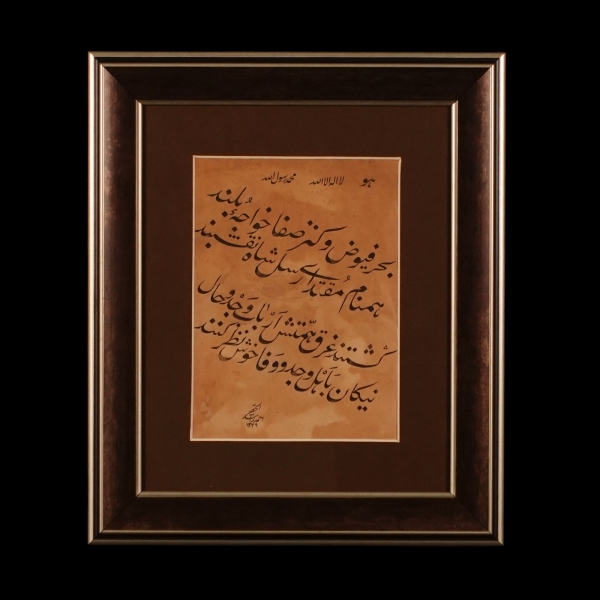 هو لا اله الا الله محمد رسول الله
بحر فیوض و کنز صفا خواجهٔ بلند
همنام مقتدای رسل شاه نقشبند
گشتند غرق همتش ارباب وجد و حال
نیکان باهل وجد و وفا خوش نظر کنند